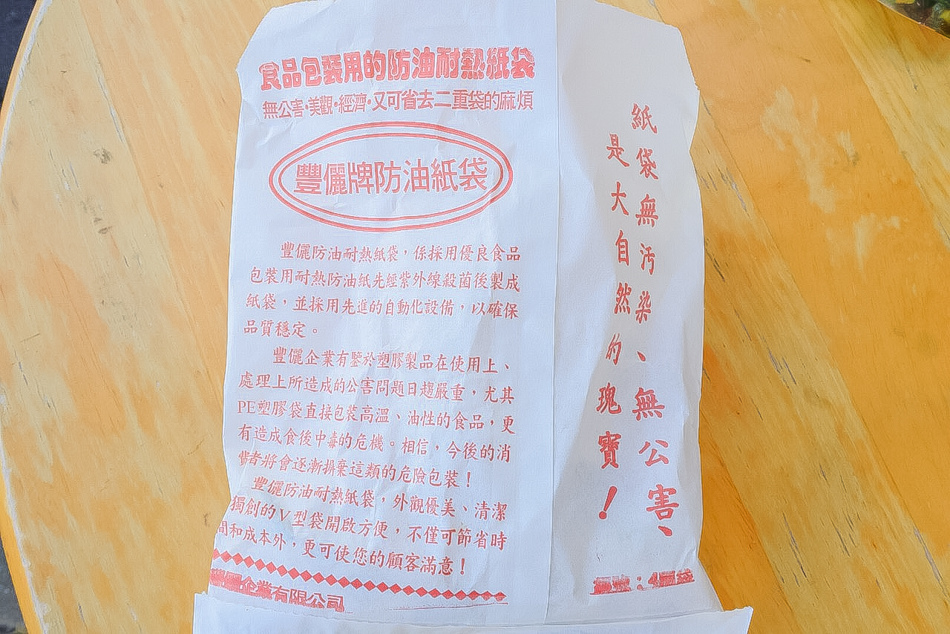 食品包裝用的防油耐熱紙袋
無公害·美觀·經濟·又可省去二重袋的麻煩
豐儷牌防油紙袋
豐儷防油耐熱紙袋，係採用優良食品
包裝用耐熱防油紙先經紫外線殺菌後製成
紙袋，並採用先進的自動化設備，以確保
品質穩定。
豐儷企業有鑒於塑膠製品在使用上、
處理上所造成的公害問題日趨嚴重，尤其
PE塑膠袋直接包裝高溫、油性的食品，更
有造成食後中毒的危機。相信，今後的消
費者將會逐漸摒棄這類的危險包裝！
豐儷防油耐熱紙袋，外觀優美、清潔
獨創的V型袋開啟方便，不僅可節省時
間和成本外，更可使您的顧客滿意！
豐儷企業有限公司
紙袋無污染、無公害、
是大自然的瑰寶！